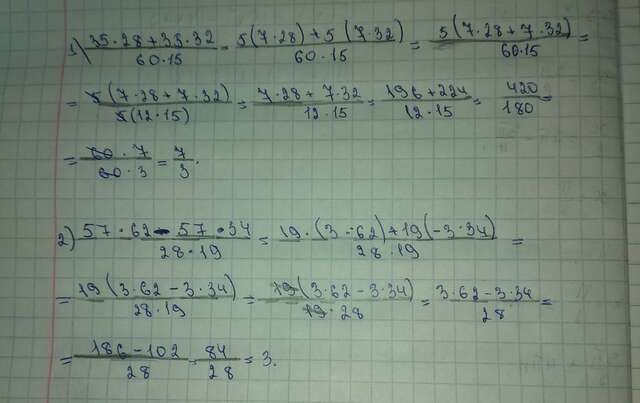 1) (35·28+35·32)/(60·15) = (5(7·28)+5(7·32))/(60·15) = (5(7·28+7·32))/(60·15) =
= (5(7·28+7·32))/(5(12·15)) = (7·28+7·32)/(12·15) = (196+224)/(12·15) = 420/180 =
= (60·7)/(60·3) = 7/3.
2) (57·62-57·34)/(28·19) = (19·(3·62)+19(-3·34))/(28·19) =
= (19(3·62-3·34))/(28·19) = (19(3·62-3·34))/(19·28) = (3·62-3·34)/28 =
= (186-102)/28 = 84/28 = 3.